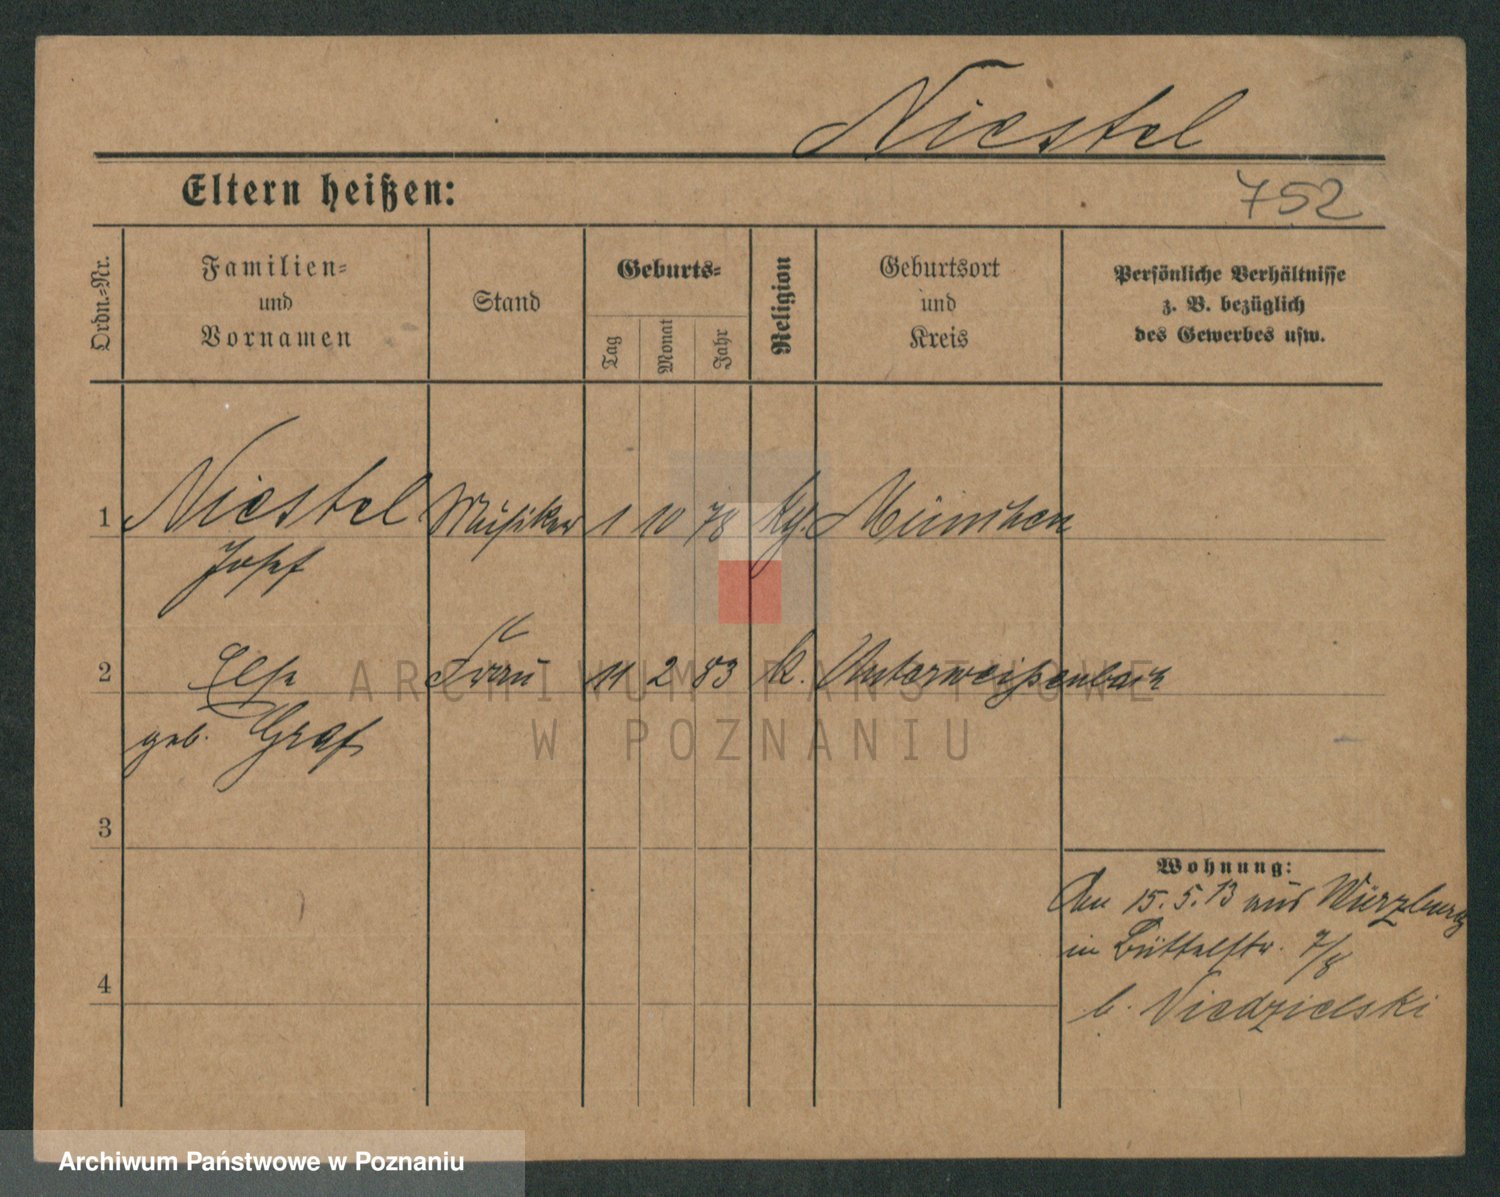 Niestel
Eltern heißen:
752
Ordn.-Nr.
Familien-
und
Vornamen
Stand
Geburts-
Tag
Monat
Jahr
Religion
Geburtsort
und
Kreis
Persönliche Verhältnisse
z. B. bezüglich
des Gewerbes usw.
1 Niestel Musiker 1 10 78 München
Josef
2 Else Frau 11 2 83 k. Unterweißenbach
geb. Graf
3
Wohnung:
Am 15.5.13 aus Würzburg
in Büttelstr. 7/8
b. Niedzielski
4
ARCHIWUM PAŃSTWOWE
W POZNANIU
Archiwum Państwowe w Poznaniu